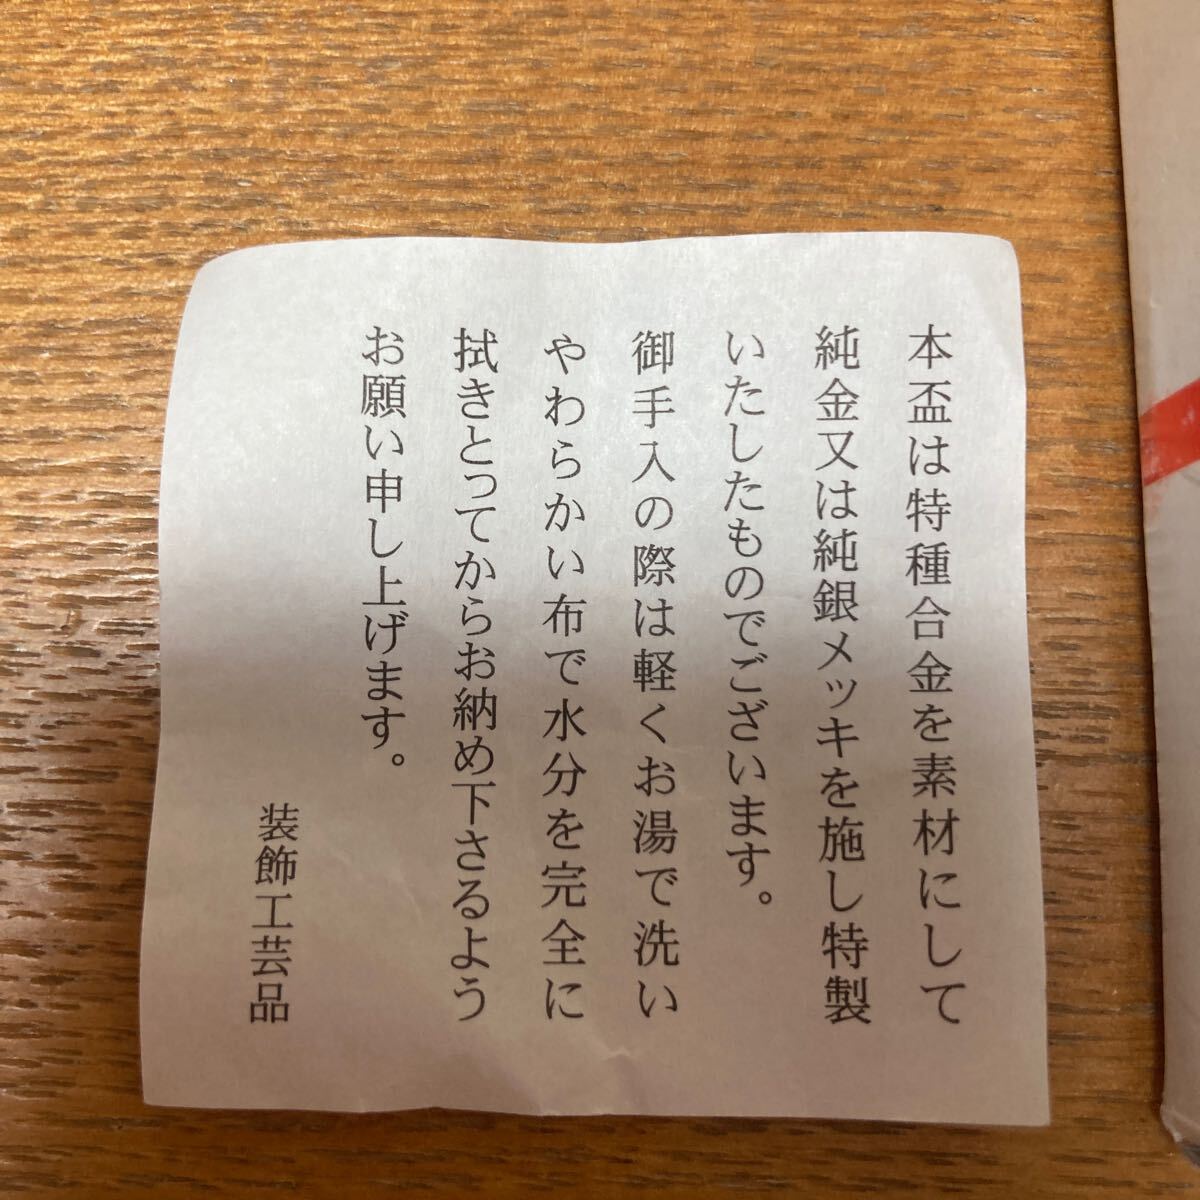 本盃は特種合金を素材にして
純金又は純銀メッキを施し特製
いたしたものでございます。
御手入の際は軽くお湯で洗い
やわらかい布で水分を完全に
拭きとってからお納め下さるよう
お願い申し上げます。
装飾工芸品